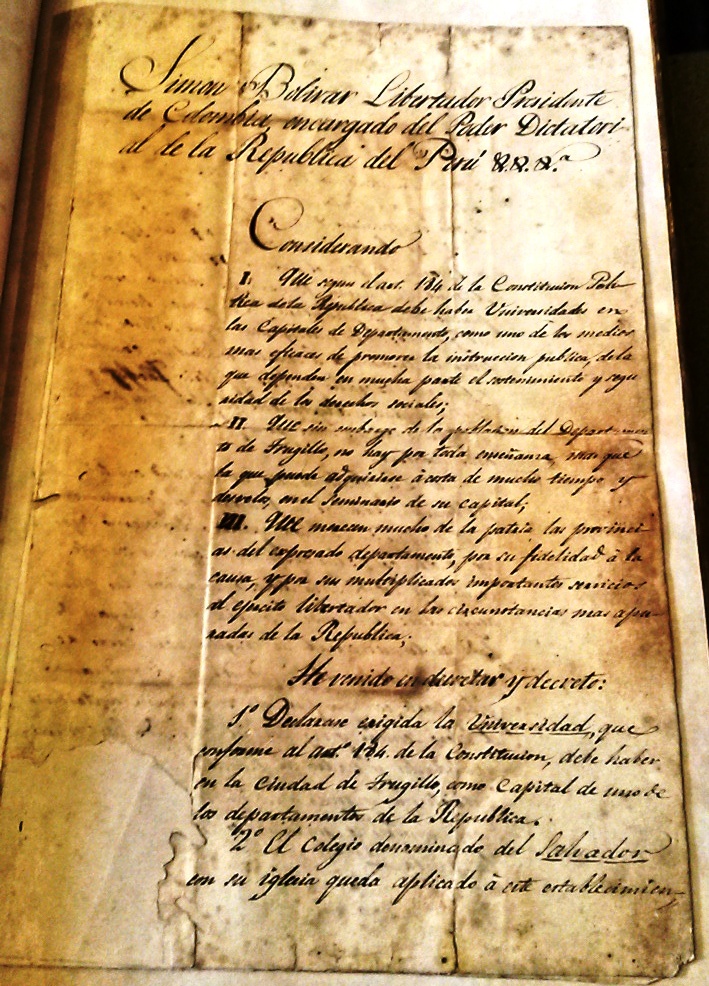 Simon Bolivar Libertador Presidente
de Colombia, encargado del Poder Dictatori-
al de la Republica del Perú &. &. &.ª
Considerando
I. Que segun el art. 184 de la Constitucion Poli-
tica de la Republica debe haber Universidades en
las Capitales de Departamento, como uno de los medios
mas eficaces de promover la instruccion publica, de la
que dependen en mucha parte el sostenimiento y segu
ridad de los derechos sociales;
II. Que sin embargo de la poblacion del Departamen
to de Trugillo, no hay por toda enseñanza, mas que
la que puede adquirirse à costa de mucho tiempo y
desvelo, en el Seminario de su capital;
III. Que merecen mucho de la patria las provinci-
as del expresado departamento, por su fidelidad à la
causa, y por sus multiplicados importantes servicios
al ejército libertador en las circunstancias mas apu-
radas de la Republica;
He venido en decretar y decreto:
1º Declarase erigida la Universidad, que
conforme al art.º 184. de la Constitucion, debe haber
en la Ciudad de Trugillo, como Capital de uno de
los departamentos de la Republica.
2º El Colegio denominado del Salvador
con su iglesia queda aplicado à este establecimien-